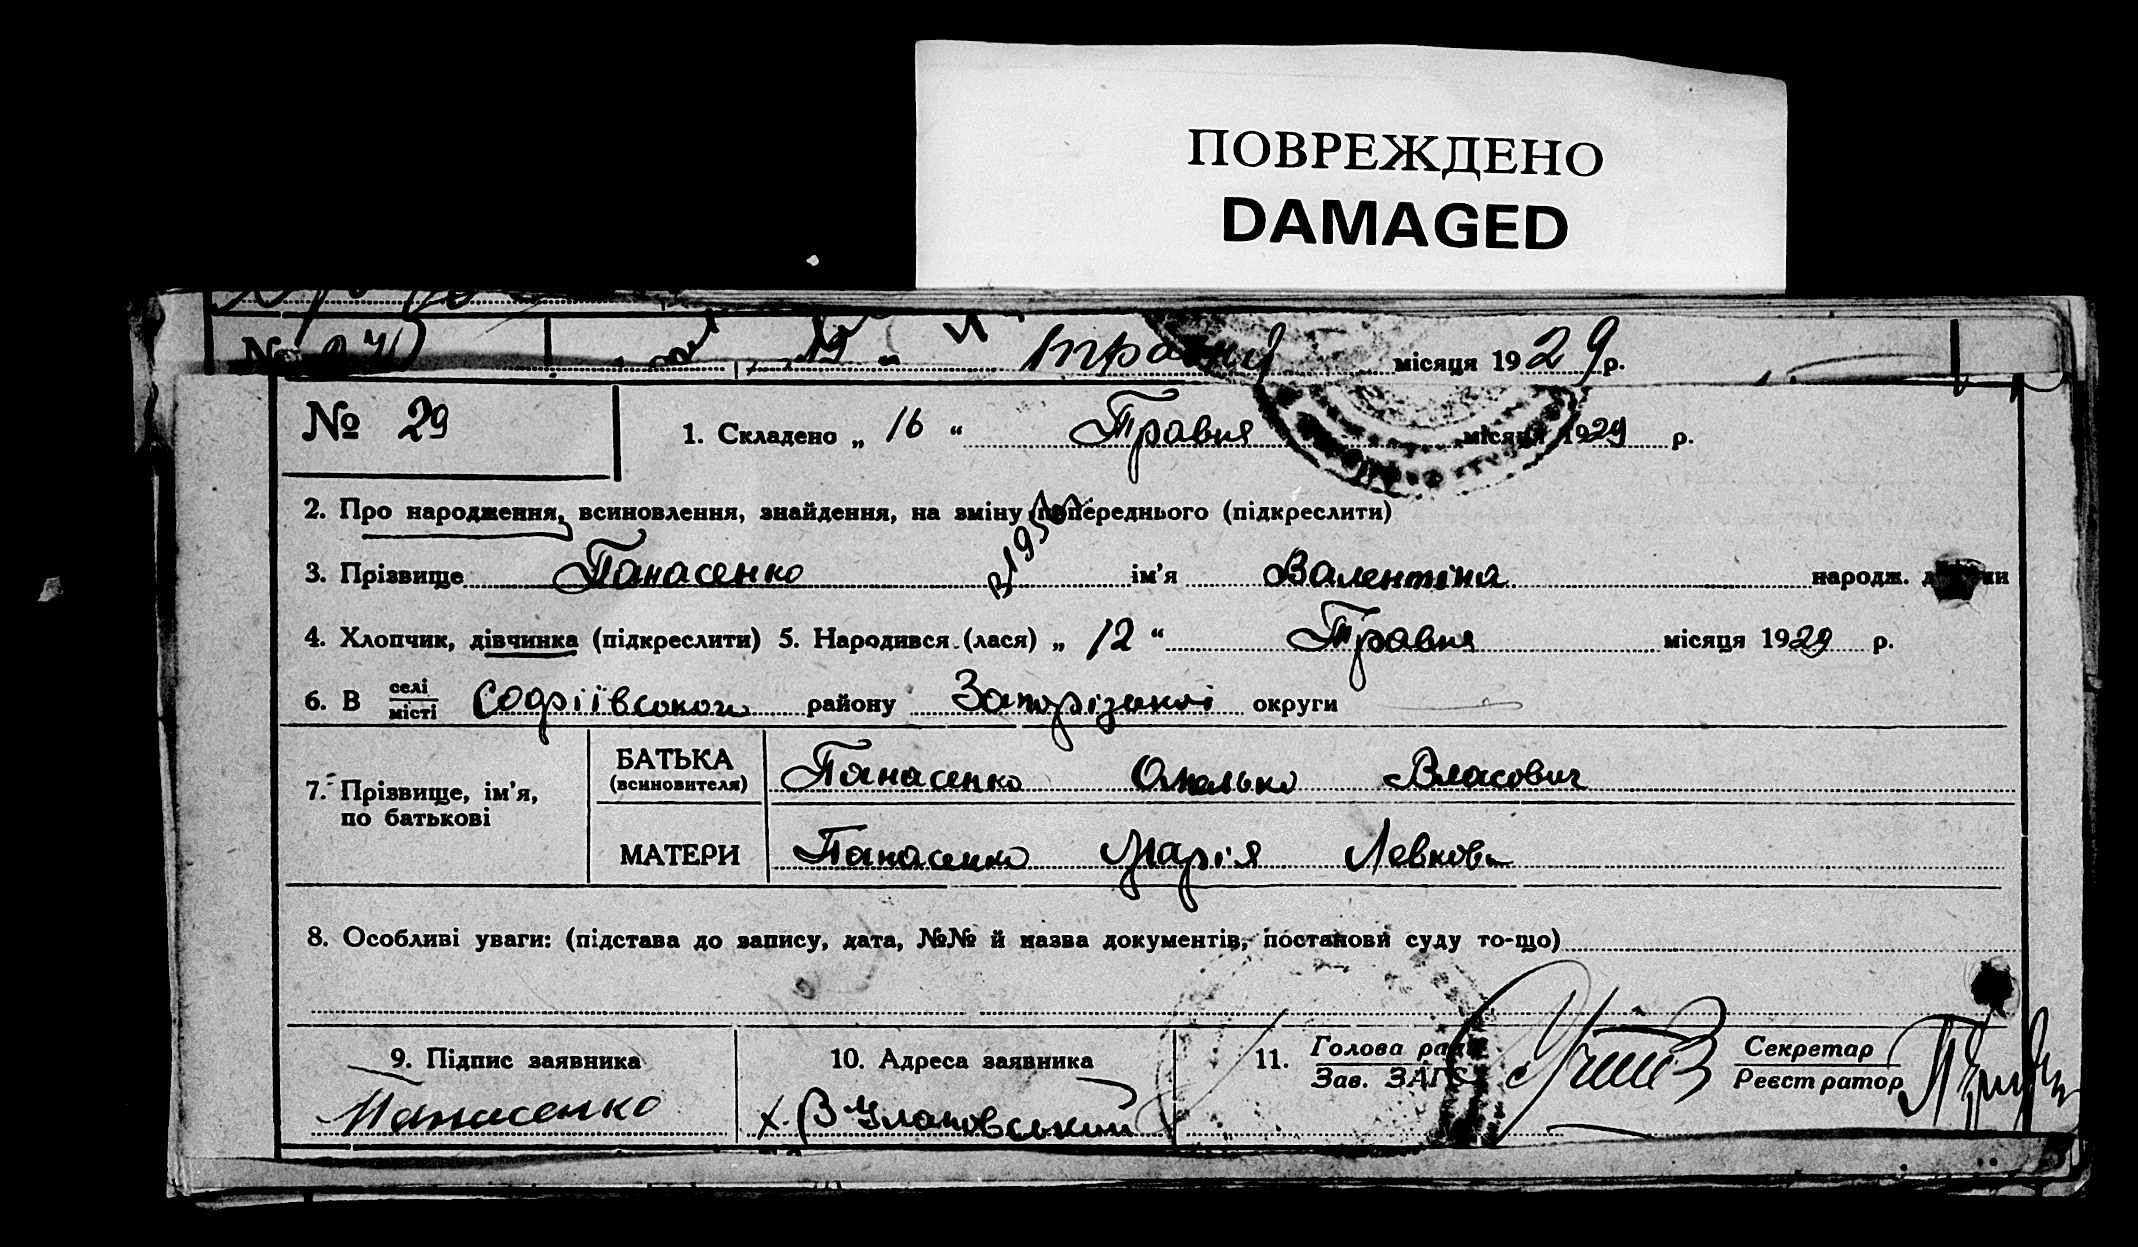 ПОВРЕЖДЕНО
DAMAGED
місяця 1929 р.
№ 29
1. Складено „ 16 “ Травня місяця 1929 р.
2. Про народження, всиновлення, знайдення, на зміну попереднього (підкреслити)
3. Прізвище Панасенко ім'я Валентіна народж.
4. Хлопчик, дівчинка (підкреслити) 5. Народився (лася) „ 12 “ Травня місяця 1929 р.
6. В селі місті Софіївського району Запорізької округи
7. Прізвище, ім'я, по батькові
БАТЬКА (всиновителя) Панасенко Омелько Власович
МАТЕРИ Панасенко Марія Левков
8. Особливі уваги: (підстава до запису, дата, №№ й назва документів, постанови суду то-що)
9. Підпис заявника
Панасенко
10. Адреса заявника
х.
11. Голова ради
Зав. ЗАГС
Секретар
Реєстратор